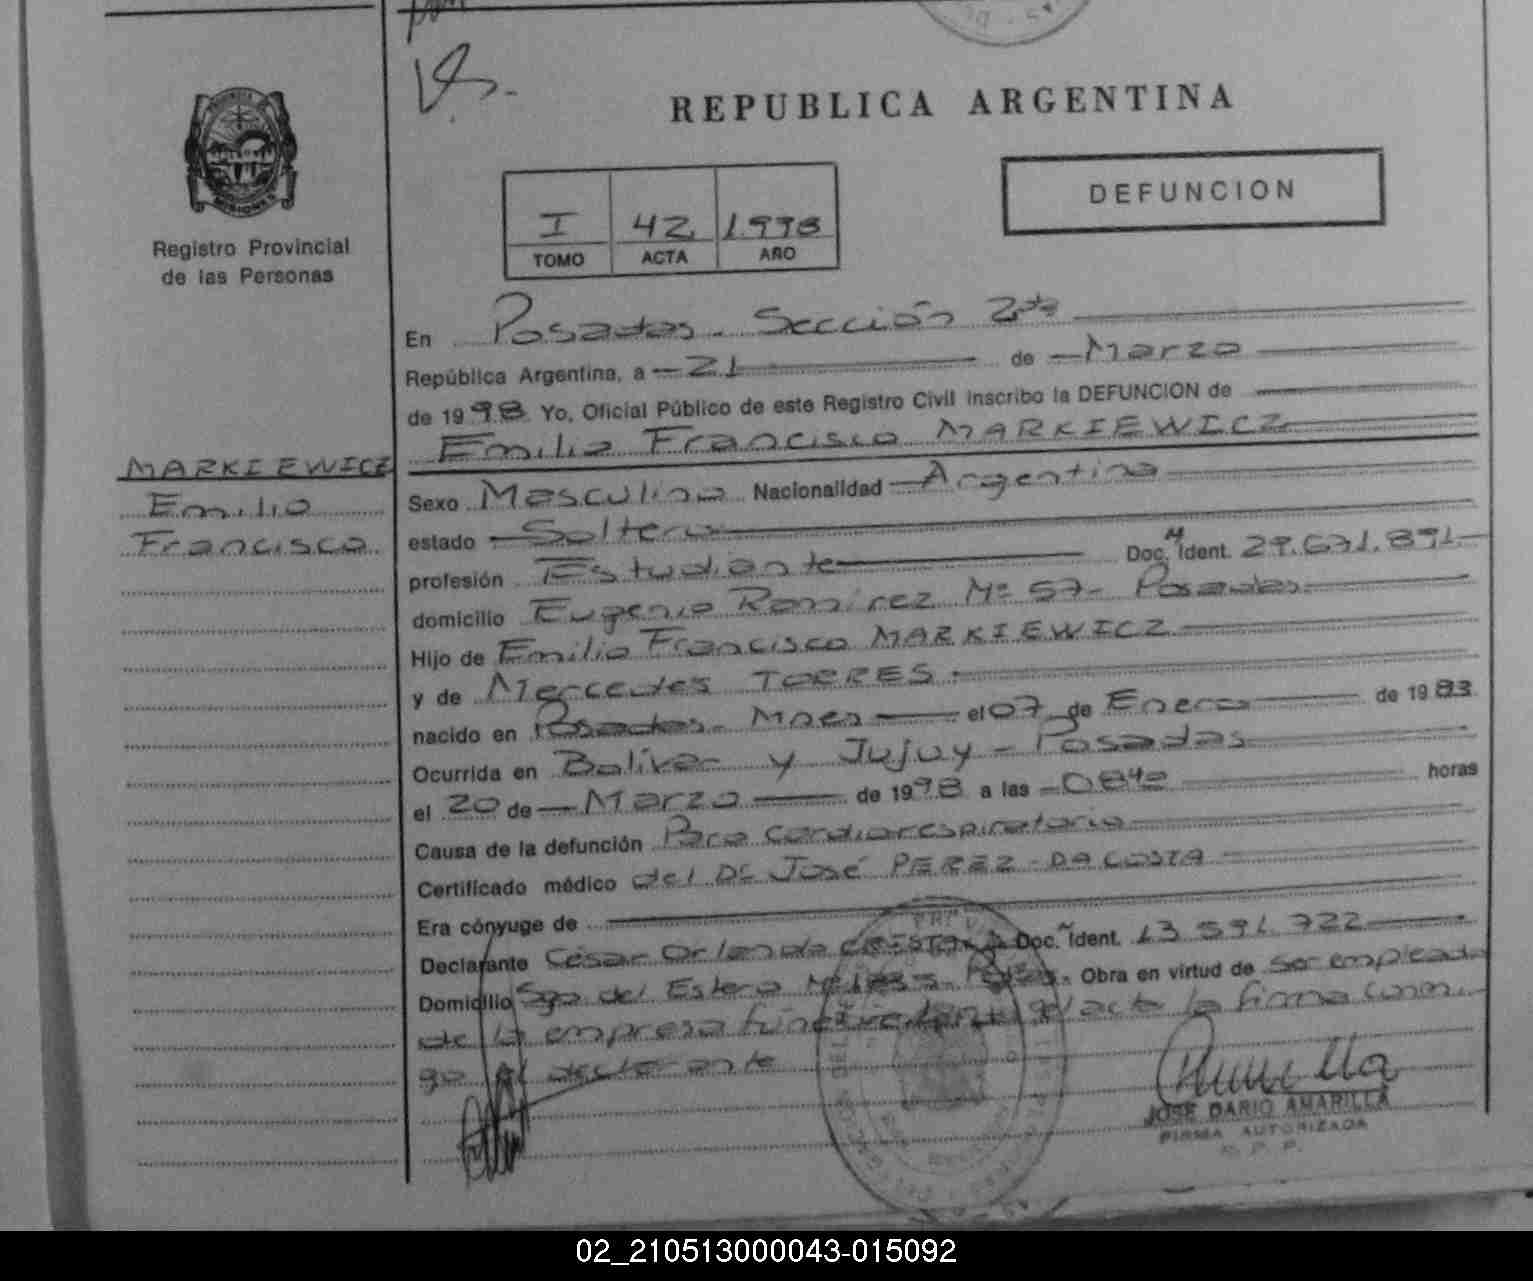 REPUBLICA ARGENTINA
Registro Provincial
de las Personas
DEFUNCION
I 42 1.998
TOMO ACTA AÑO
En Posadas. Sección 2da
República Argentina, a 21 de Marzo
de 1998 Yo, Oficial Público de este Registro Civil inscribo la DEFUNCION de
Emilio Francisco MARKIEWICZ
MARKIEWICZ
Emilio
Francisco
Sexo Masculino Nacionalidad Argentina
estado Soltero
profesión Estudiante Doc. N Ident. 29.671.891
domicilio Eugenio Ramirez Nº 57- Posadas
Hijo de Emilio Francisco MARKIEWICZ
y de Mercedes TORRES
nacido en Posadas- Mnes el 07 de Enero de 1983
Ocurrida en Bolivar y Jujuy - Posadas
el 20 de Marzo de 1998 a las 0840 horas
Causa de la defunción Paro cardiorespiratorio
Certificado médico del Dr José PEREZ-DA COSTA
Era cónyuge de
Declarante César Orlando Doc. N Ident. 13 591.722
Domicilio Sgo del Estero Obra en virtud de ser empleado
de la empresa el acto la firma conmi-
go el declarante
JOSE DARIO AMARILLA
FIRMA AUTORIZADA
R. P. P.
02_210513000043-015092